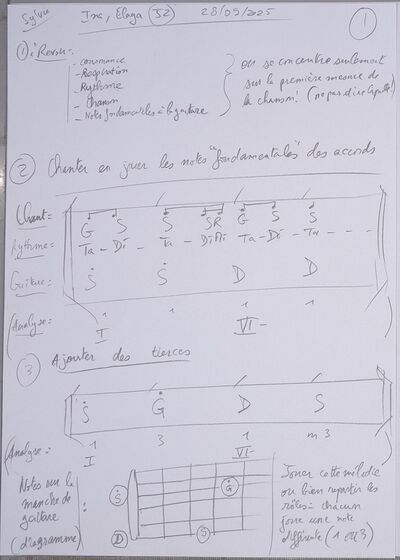 Sylvia
Ina, Elaga (32) 28/09/2025
1
1 : Revoir :
- consonance
- Respiration
- Rythme
- Chanson
- Notes fondamentales à la guitare
on se concentre seulement
sur la première mesure de
la chanson! (ne pas dire
2 Chanter en jouer les notes "fondamentales" des accords
Chant :
G S S SR G S S
Rythme :
Ta - Di - Ta - DiDi Ta - Di - Ta - - -
Guitare :
Ṡ Ṡ D D
(Analyse :
1 1 1 1
I VI-
3 Ajouter des tierces
Ṡ Ġ D S
(Analyse :
1 3 1 m3
I VI-
Notes sur la
manche de
guitare :
(diagramme)
Ṡ
Ġ
D
S
Jouer cette mélodie
ou bien repartir les
rôles = chacun
joue une note
différente (1 ou 3)